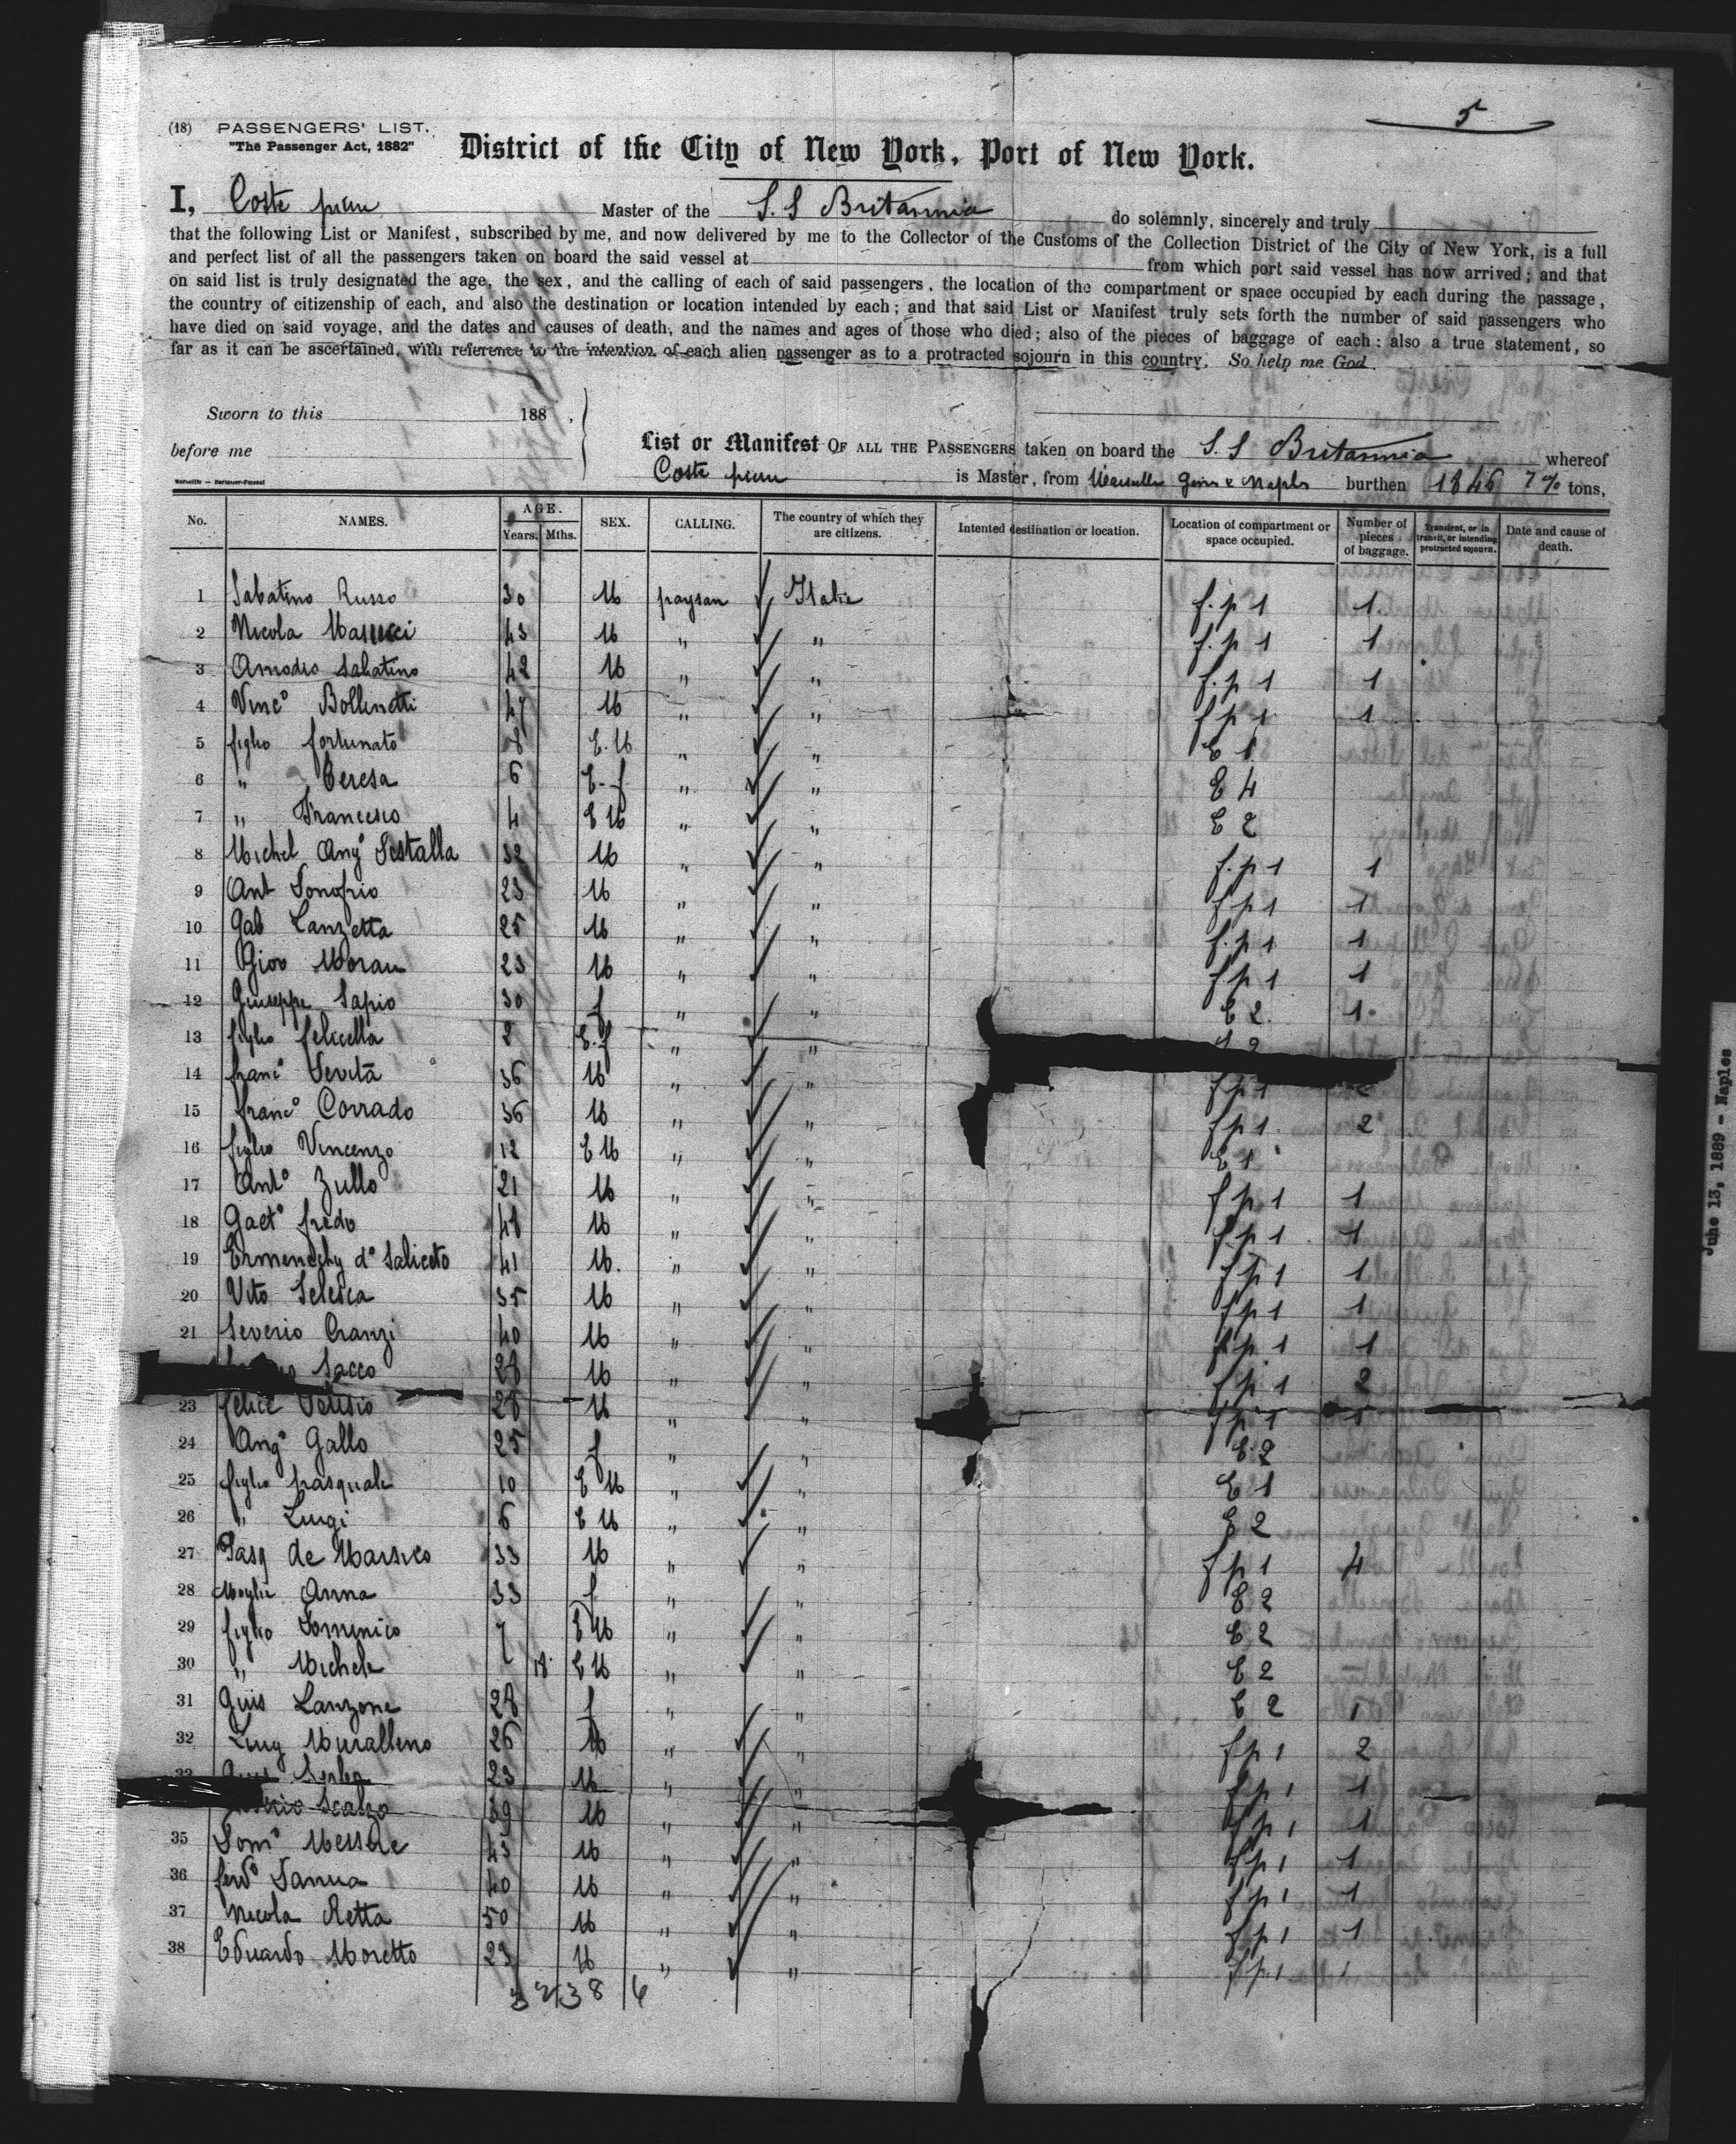 5
(18) PASSENGERS' LIST.
"The Passenger Act, 1882"
District of the City of New York, Port of New York.
I, Coste Master of the S.S Britannia do solemnly, sincerely and truly
that the following List or Manifest, subscribed by me, and now delivered by me to the Collector of the Customs of the Collection District of the City of New York, is a full
and perfect list of all the passengers taken on board the said vessel at from which port said vessel has now arrived; and that
on said list is truly designated the age, the sex, and the calling of each of said passengers, the location of the compartment or space occupied by each during the passage,
the country of citizenship of each, and also the destination or location intended by each; and that said List or Manifest truly sets forth the number of said passengers who
have died on said voyage, and the dates and causes of death, and the names and ages of those who died; also of the pieces of baggage of each: also a true statement, so
far as it can be ascertained, with reference to the intention of each alien passenger as to a protracted sojourn in this country. So help me God.
Sworn to this 188 ,
before me
List or Manifest OF ALL THE PASSENGERS taken on board the S.S Britannia whereof
Coste is Master, from Marseille Genes & Naples burthen 1846 tons,
No. NAMES. AGE. Years. Mths. SEX. CALLING. The country of which they are citizens. Intented destination or location. Location of compartment or space occupied. Number of pieces of baggage. Transient, or in transit, or intending protracted sojourn. Date and cause of death.
1 Sabatino Russo 30 M paysan Italie f.p 1 1
2 Nicola Masucci 43 M " " f.p 1 1
3 Amodio Sabatino 42 M " " f.p 1 1
4 Vinc° Bollinetti 47 M " " f p 1 1
5 figlio fortunato 8 E.M " " E 1
6 " Teresa 6 E.f " " E 4
7 " Francesco 4 E M " " E 2
8 Michel Ang° Testalla 32 M " " f.p 1 1
9 Ant Donofrio 23 M " " f p 1 1
10 Gab Lanzetta 25 M " " f.p 1 1
11 Giov Moran 23 M " " f p 1 1
12 Giuseppe Sapio 30 f " " E 2 1
13 figlio felicella 2 E.f " "
14 franc° 36 M " " f p 1
15 franc° Corrado 36 M " " f p 1 2
16 figlio Vincenzo 12 E M " " E 1
17 Ant° Zullo 21 M " " f p 1 1
18 Gaet° fredo 48 M " " f p 1 1
19 d° Saliceto 41 M " " f p 1 1
20 Vito Telesca 35 M " " f p 1 1
21 Severio Cranzi 40 M " " f p 1 1
Sacco 28 M " " f p 1 2
23 felice 28 M " " f p 1 1
24 Ang° Gallo 25 f " " E 2
25 figlio pasquale 10 E M " " E 1
26 " Luigi 6 E M " " E 2
27 Pasq de Marsico 33 M " " f p 1 4
28 Moglie Anna 33 f " " E 2
29 figlio Dominico 7 E M " " E 2
30 " Michele 18 E M " " E 2
31 Gius Lanzone 28 f " " E 2 1
32 Luig Miralleno 26 M " " f p 1 2
33 23 M " " f p 1 1
Scalzo 39 M " " f p 1 1
35 Dom° Messere 45 M " " f p 1 1
36 ferd° Sanna 40 M " " f p 1 1
37 Nicola Retta 50 M " " f p 1 1
38 Eduardo Moretto 23 M " " f p 1 1
June 13, 1889 - Naples